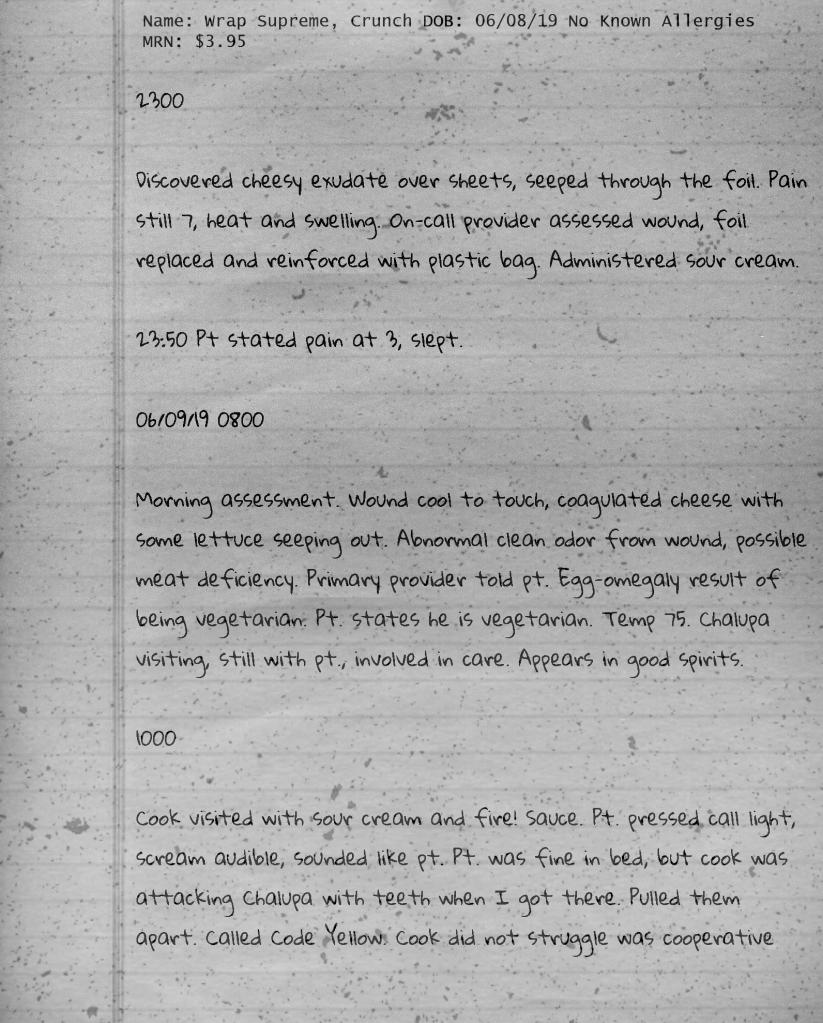 Name: Wrap Supreme, Crunch DOB: 06/08/19 No Known Allergies
MRN: $3.95
2300
Discovered cheesy exudate over sheets, seeped through the foil. Pain
still 7, heat and swelling. On-call provider assessed wound, foil
replaced and reinforced with plastic bag. Administered sour cream.
23:50 Pt stated pain at 3, slept.
06/09/19 0800
Morning assessment. Wound cool to touch, coagulated cheese with
some lettuce seeping out. Abnormal clean odor from wound, possible
meat deficiency. Primary provider told pt. Egg-omegaly result of
being vegetarian. Pt. states he is vegetarian. Temp 75. Chalupa
visiting, still with pt., involved in care. Appears in good spirits.
1000
Cook visited with sour cream and fire! Sauce. Pt. pressed call light,
scream audible, sounded like pt. Pt. was fine in bed, but cook was
attacking Chalupa with teeth when I got there. Pulled them
apart. Called Code Yellow. Cook did not struggle was cooperative